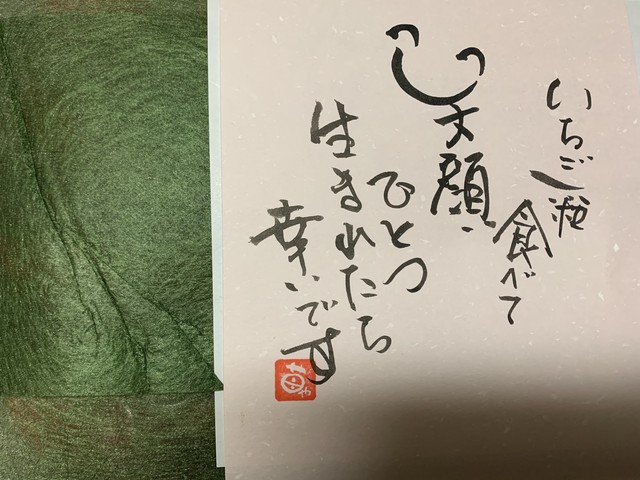 いちご一粒
食べて
笑顔、
ひとつ
生まれたら
幸いです